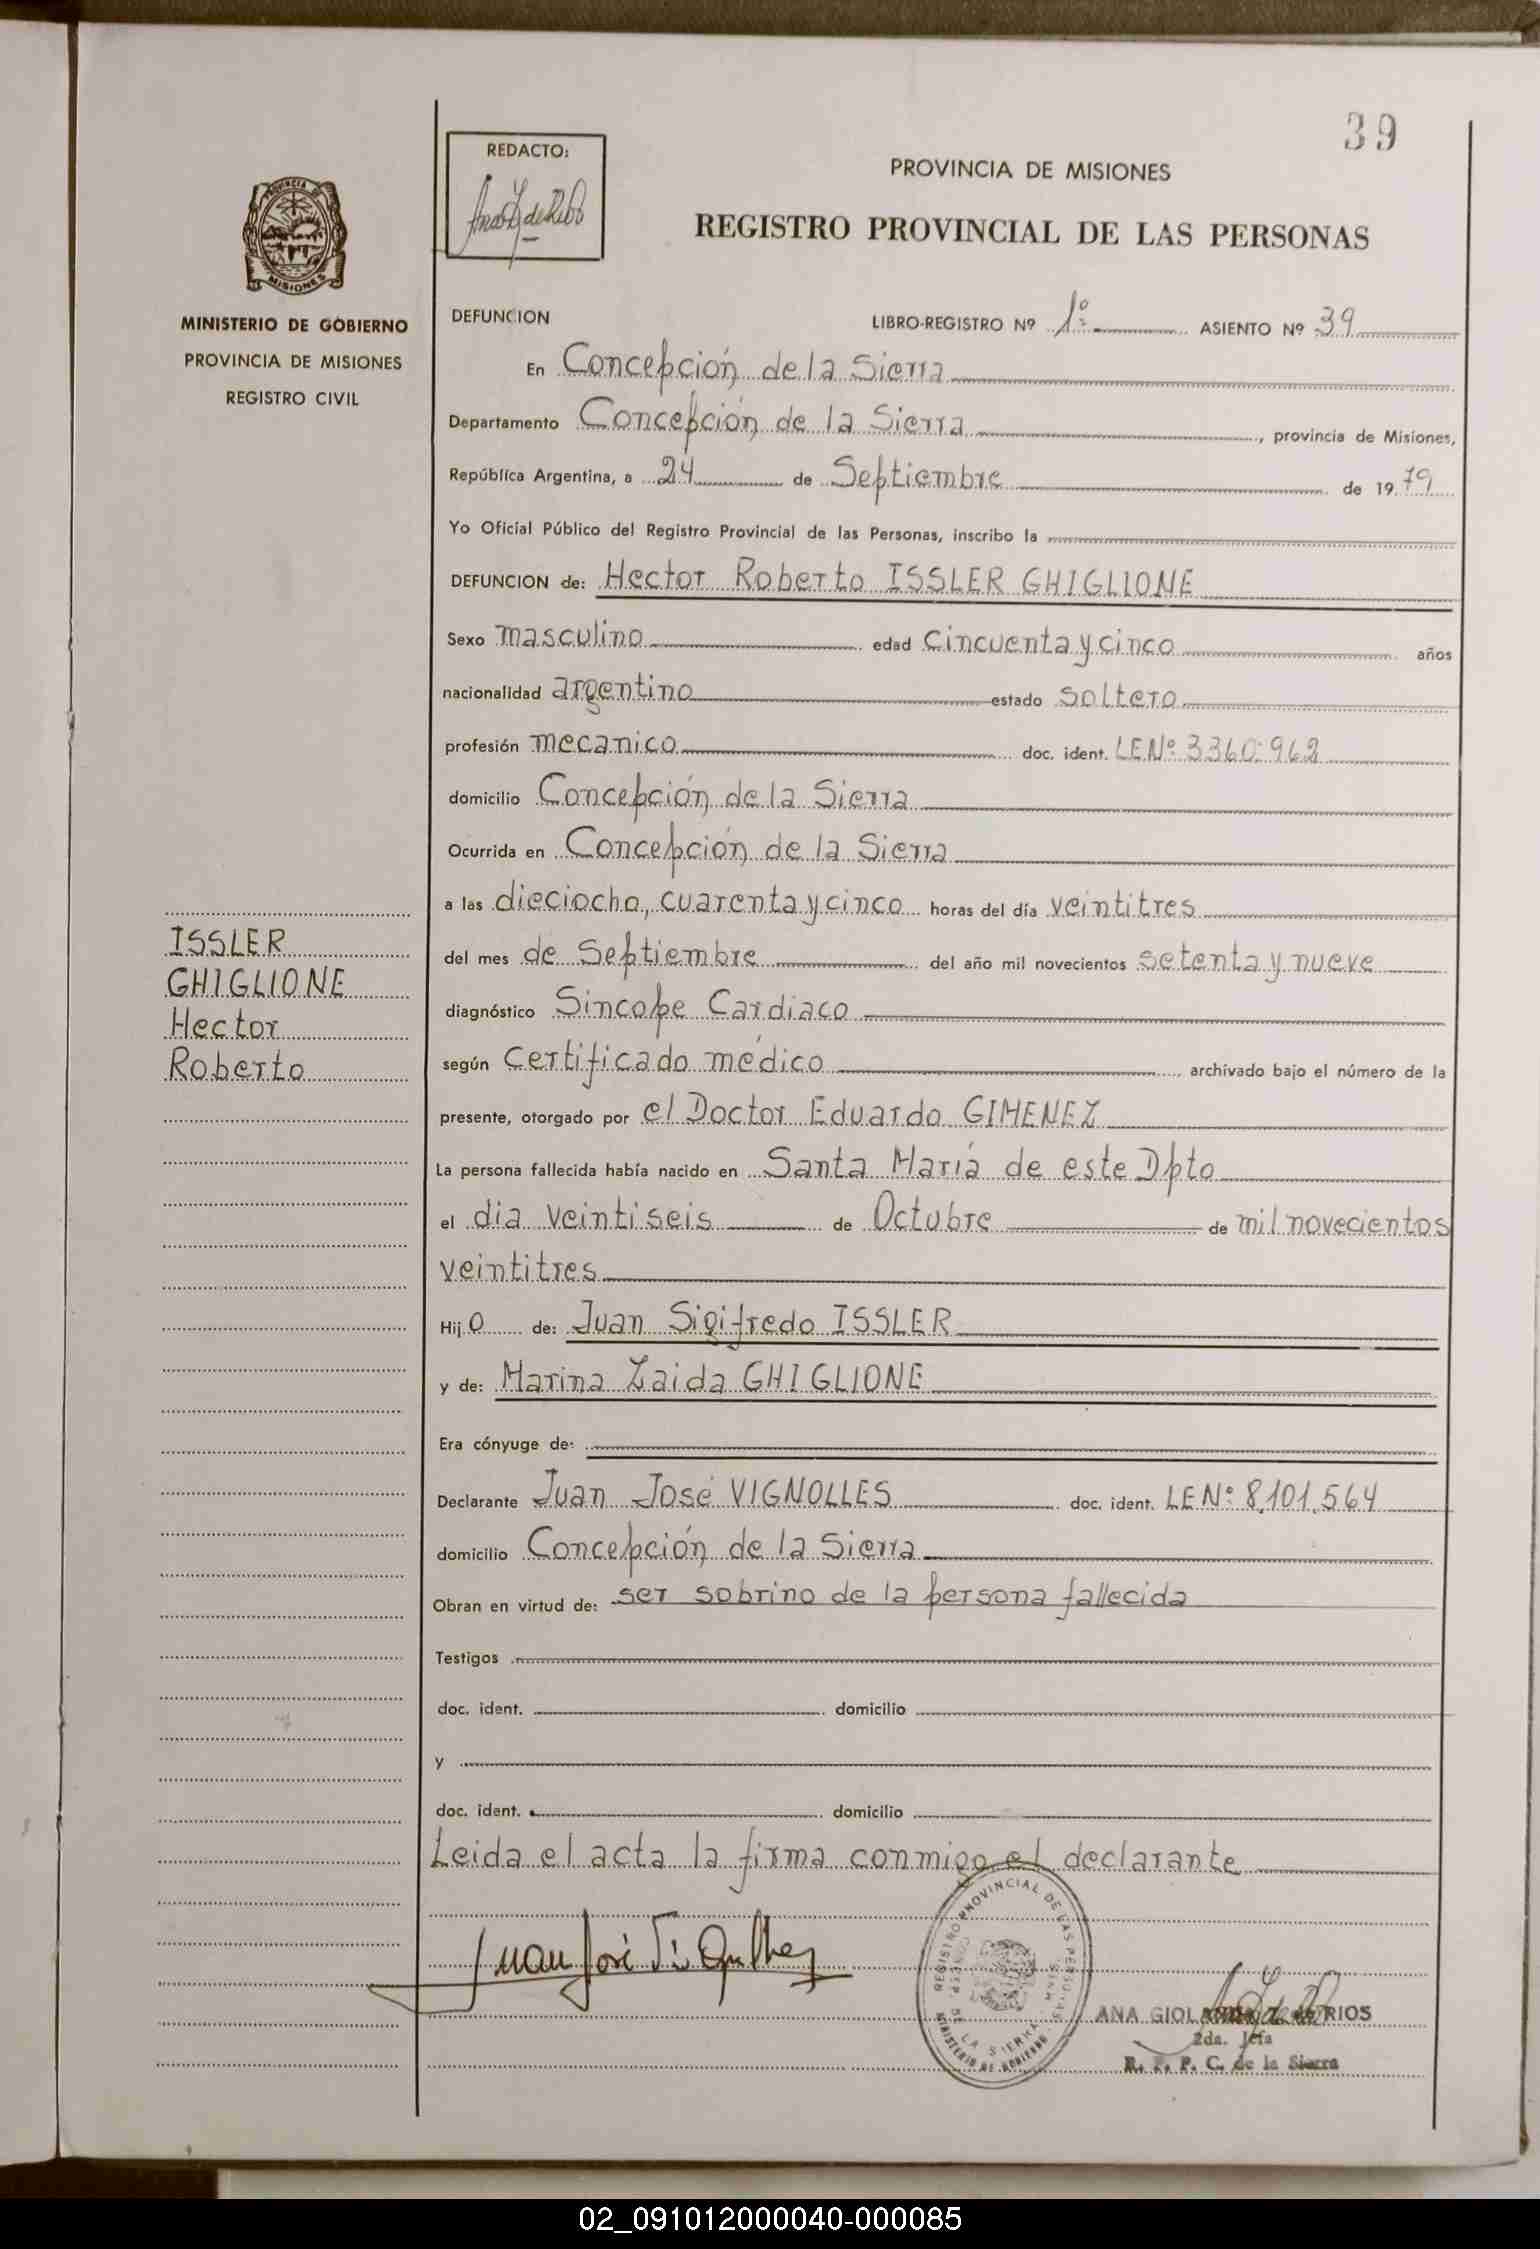 39
REDACTO:
PROVINCIA DE MISIONES
REGISTRO PROVINCIAL DE LAS PERSONAS
PROVINCIA DE
MISIONES
MINISTERIO DE GOBIERNO
PROVINCIA DE MISIONES
REGISTRO CIVIL
DEFUNCION
LIBRO-REGISTRO Nº 1º ASIENTO Nº 39
En Concepción de la Sierra
Departamento Concepción de la Sierra, provincia de Misiones,
República Argentina, a 24 de Septiembre de 1979
Yo Oficial Público del Registro Provincial de las Personas, inscribo la
DEFUNCION de: Hector Roberto ISSLER GHIGLIONE
Sexo masculino edad cincuenta y cinco años
nacionalidad argentino estado soltero
profesión mecanico doc. ident. LENº 3360.962
domicilio Concepción de la Sierra
Ocurrida en Concepción de la Sierra
a las dieciocho, cuarenta y cinco horas del día veintitres
del mes de Septiembre del año mil novecientos setenta y nueve
diagnóstico Sincope Cardiaco
según certificado médico, archivado bajo el número de la
presente, otorgado por el Doctor Eduardo GIMENEZ
La persona fallecida había nacido en Santa María de este Dpto
el dia veintiseis de Octubre de mil novecientos
veintitres
Hijo de: Juan Sigifredo ISSLER
y de: Marina Zaida GHIGLIONE
Era cónyuge de:
Declarante Juan José VIGNOLLES doc. ident. LENº 8.101.564
domicilio Concepción de la Sierra
Obran en virtud de: ser sobrino de la persona fallecida
Testigos
doc. ident. domicilio
y
doc. ident. domicilio
Leida el acta la firma conmigo el declarante
ISSLER
GHIGLIONE
Hector
Roberto
Juan José
REGISTRO PROVINCIAL DE LAS PERSONAS
DE LA SIERRA
MINISTERIO DE GOBIERNO
ANA RIOS
2da. Jefa
R. P. P. C. de la Sierra
02_091012000040-000085